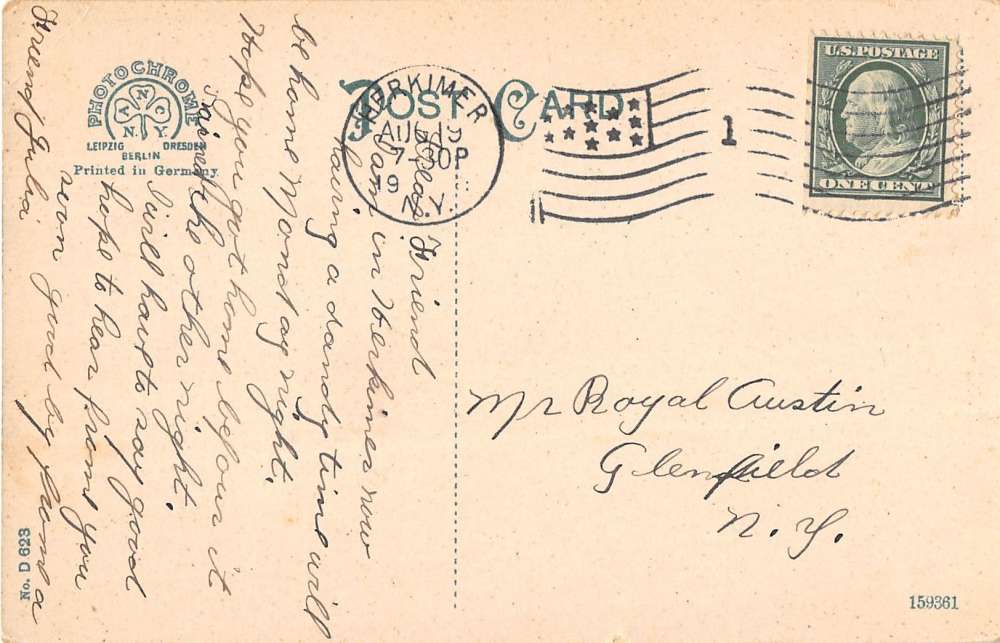 PHOTOCHROME
A N C
N. Y.
LEIPZIG DRESDEN
BERLIN
Printed in Germany.
POST CARD
HERKIMER
AUG 19
7 30P
19
N.Y.
1
U.S. POSTAGE
ONE CENT
Friend
I am in Herkimer now
having a dandy time will
be home Monday night.
Hope you got home before it
rained the other night.
I will have to say good
hope to hear from you
soon good by from a
Friend Julia
Mr Royal Austin
Glenfield
N. Y.
No. D 623
159361